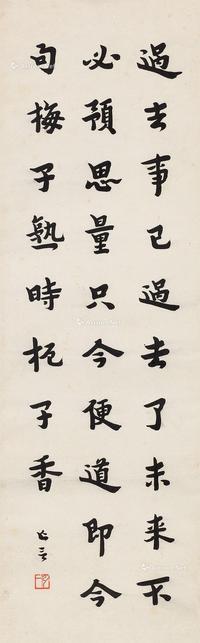 過去事已過去了未来不
必預思量只今便道即今
句梅子熟時梔子香